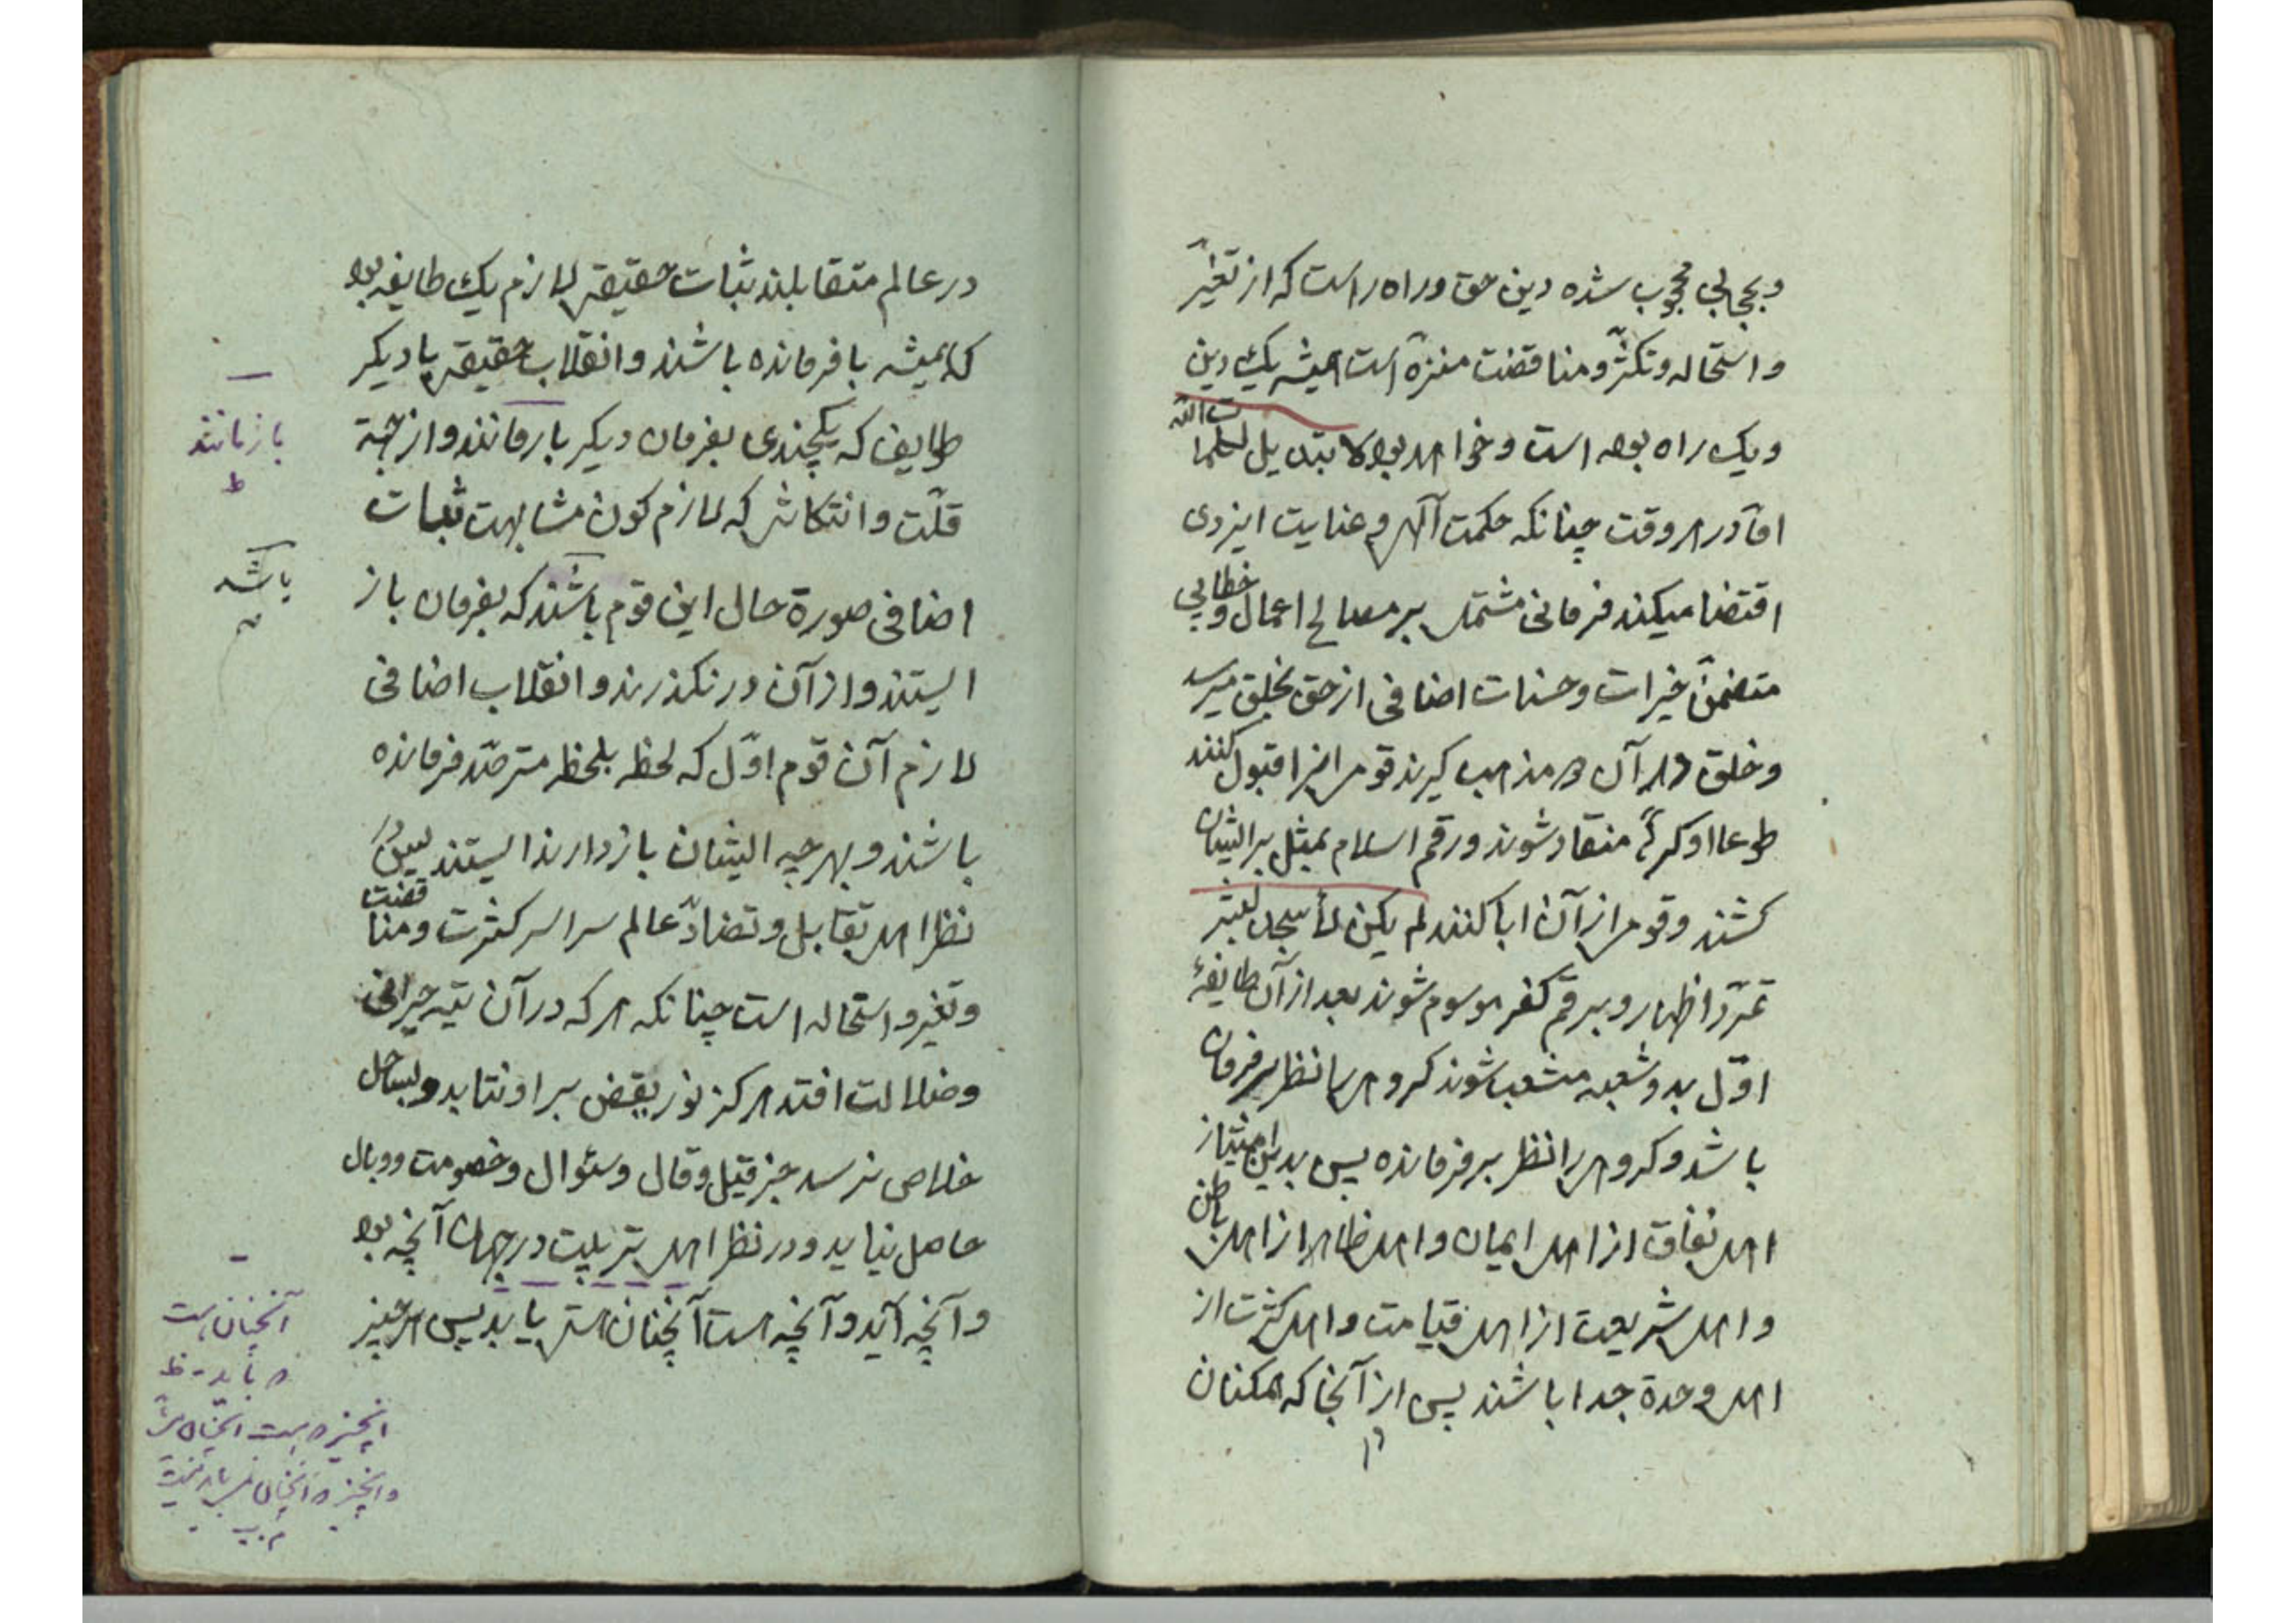 و بحجابی محجوب شده دین حق و راه راست که از تغیّر
و استحاله و تکثّر و مناقضت منزّه است همیشه یک دین
و یک راه بوده است و خواهد بود لا تبدیل لکلمات الله
امّا در هر وقت چنانکه حکمت آلهی و عنایت ایزدی
اقتضا میکند فرمانی مشتمل بر مصالح اعمال و خطابی
متضمّن خیرات و حسنات اضافی از حق بخلق میرسد
و خلق در آن دو مذهب گیرند قومی آنرا قبول کنند
طوعا او کرهًا منقاد شوند و رقم اسلام بمثل بر ایشان
کشند و قومی از آن ابا کنند لم یکن لأسجد لبشر
تمرّد اظهار و برقم کفر موسوم شوند بعد از آن طایفهٔ
اوّل بدو شعبه منشعب شوند گروهی را نظر بر فرمان
باشد و گروهی را نظر بر فرمانده پس بدین امتیاز
اهل نفاق از اهل ایمان و اهل ظاهر از اهل باطن
و اهل شریعت از اهل قیامت و اهل کثرت از
اهل وحدة جدا باشند پس از آنجا که همکنان
در عالم متقابلند ثبات حقیقی لازم یک طایفه بود
که همیشه با فرمانده باشند و انقلاب حقیقی با دیکر
طایفه که یکچندی بفرمان دیکر بازمانند و از جهة
قلّت و انتکاس که لازم کون مشابهت ثبات
اضافی صورة حال این قوم باشند که بفرمان باز
ایستند و از آن درنکذرند و انقلاب اضافی
لازم آن قوم اوّل که لحظه بلحظه مترصّد فرمانده
باشند و بهرچه ایشان بازدارند ایستند پس در
نظر اهل تقابل و تضادّ عالم سراسر کثرت و مناقضت
و تغیر و استحاله است چنانکه هر که در آن تیه حیرانی
و ضلالت افتد هرکز نور یقین بر او نتابد و بساحل
خلاص نرسد جز قیل و قال و سئوال و خصومت و وبال
حاصل نیاید و در نظر اهل ترتیب در جهان آنچه بود
و آنچه آید و آنچه است آنچنان است که باید پس هر چیز
بازمانند
ظ
باشد
آنچنان است
که باید - ظ